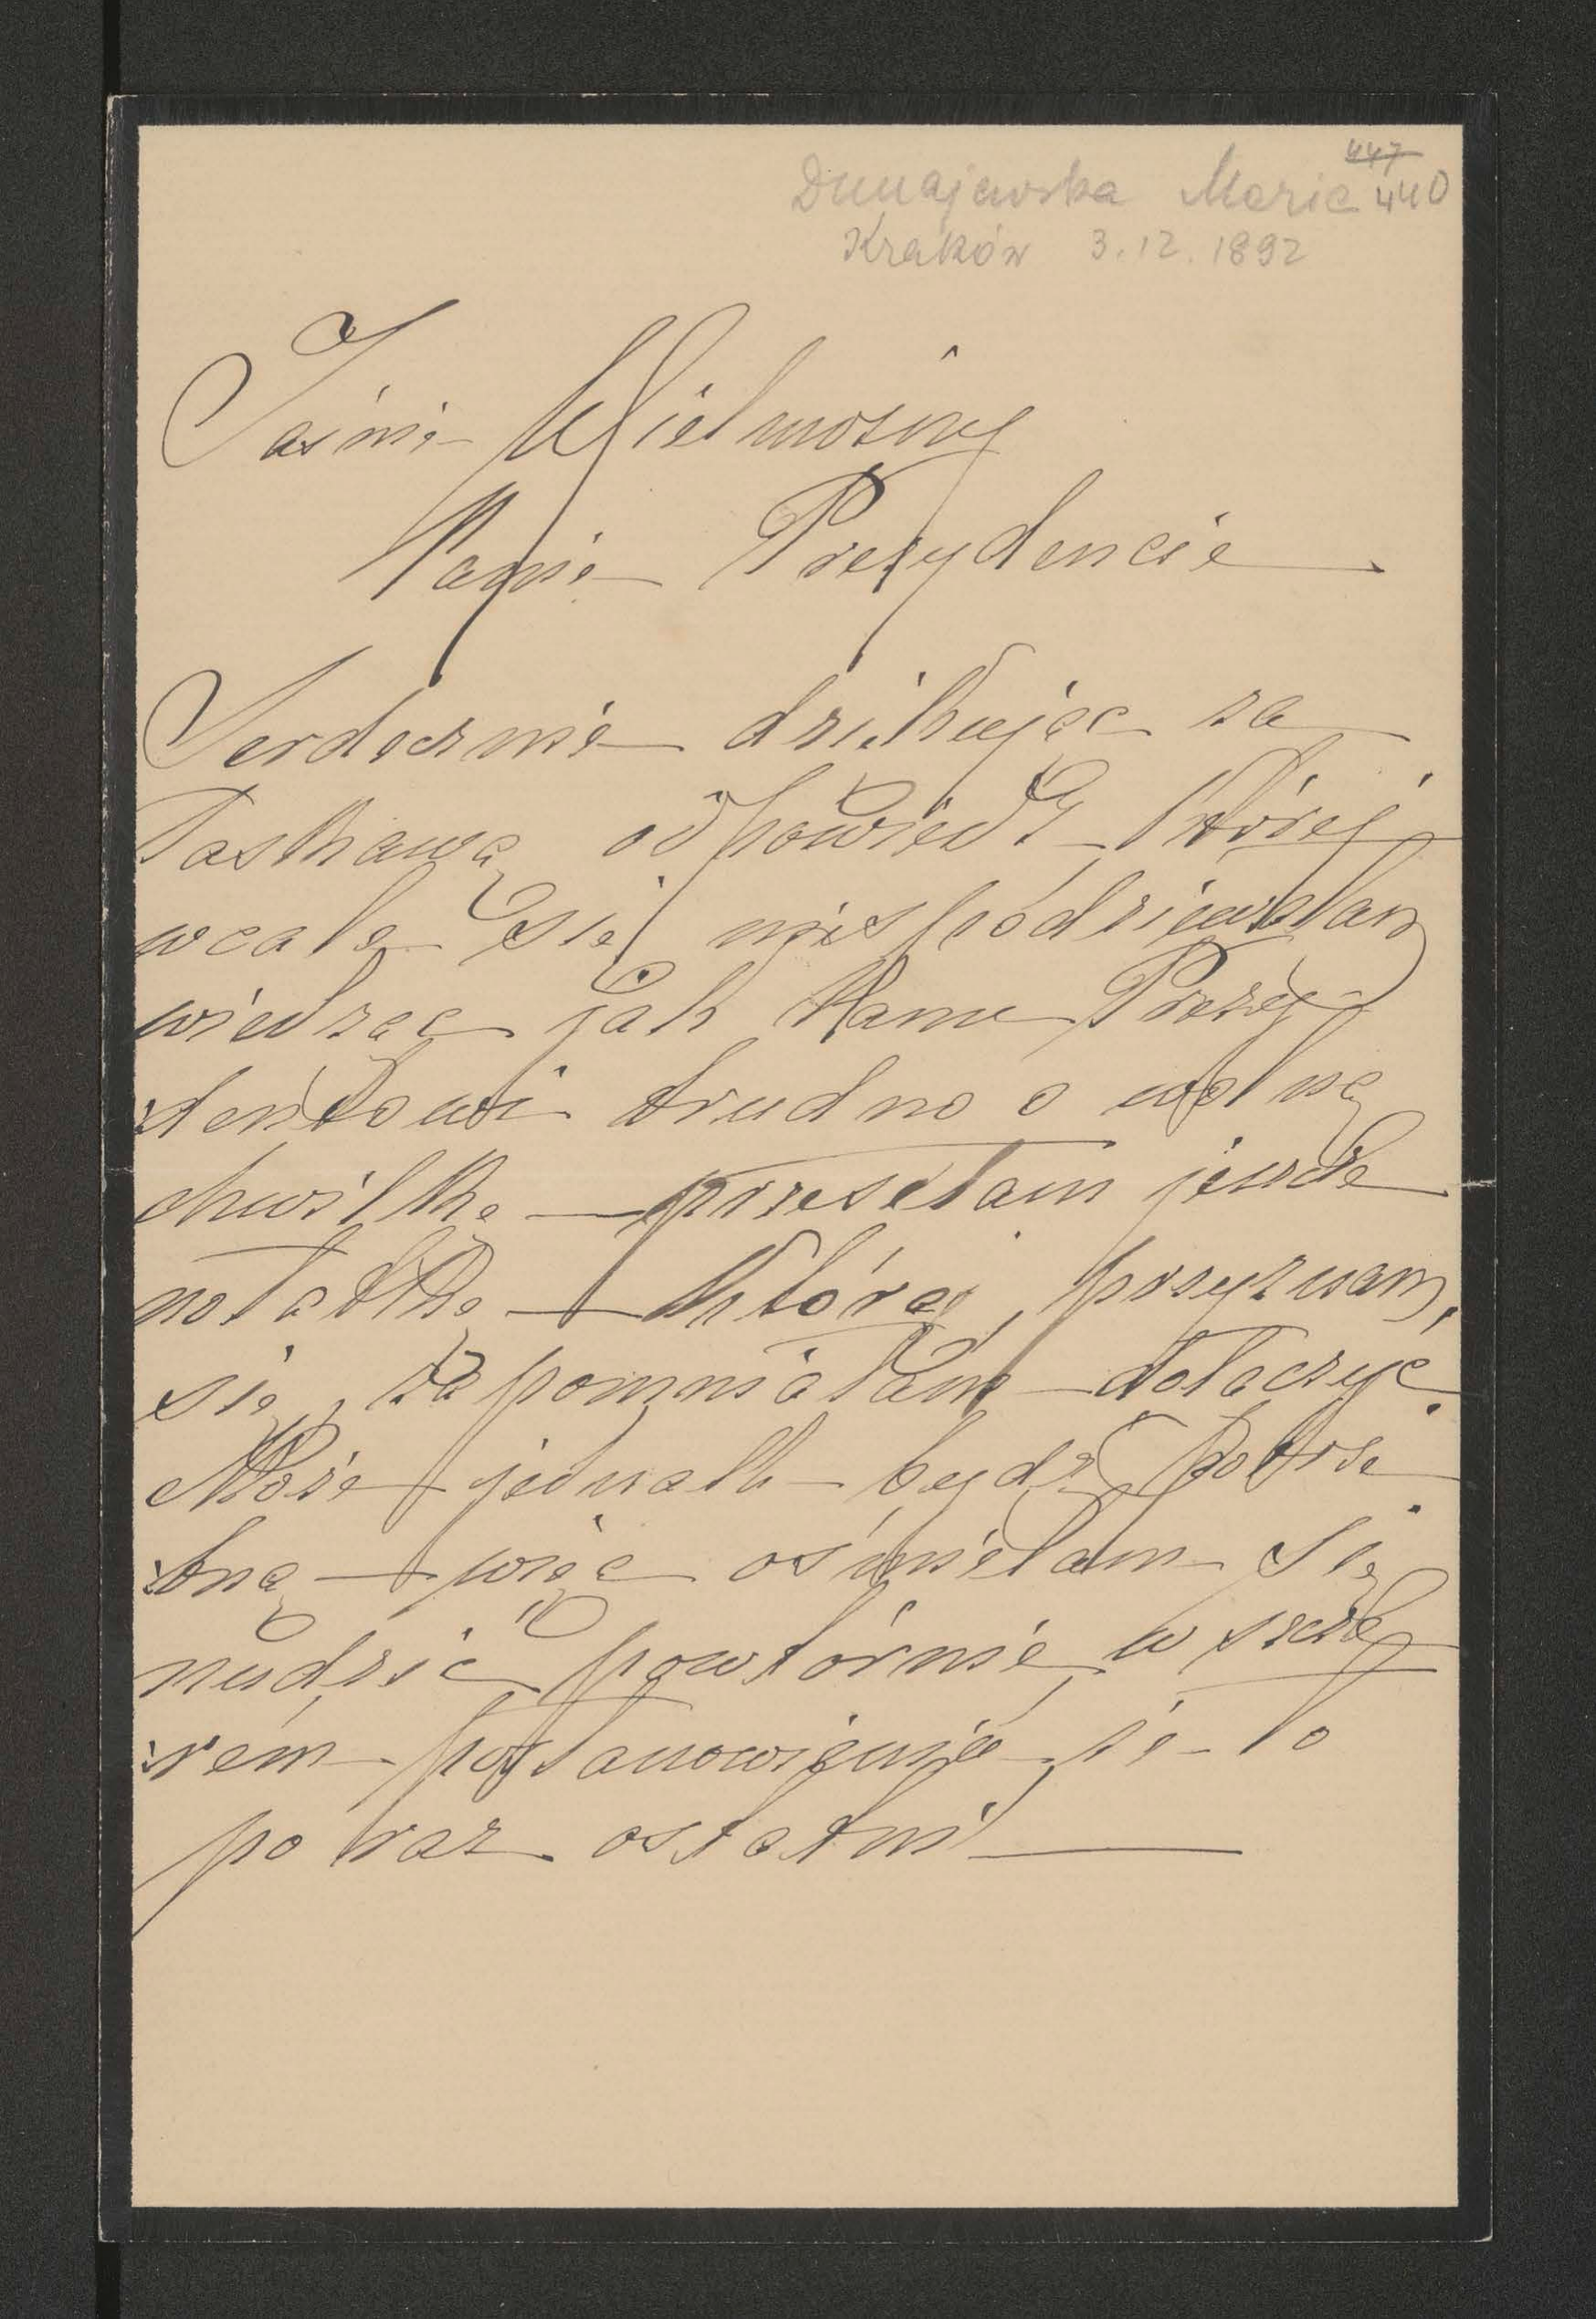 447
Dunajewska Maria 440
Kraków 3.12.1892
Jaśnie Wielmożny
Panie Prezydencie
Serdecznie dziękując za
łaskawą odpowiedź – której
wcale się nie spodziewałam
wiedząc jak Panu Prezy-
dentowi trudno o wolną
chwilkę – przesełam jeszcze
notatkę – którą, przyznam
się, zapomniałam dołączyć.
Może jednak będzie potrze
bną – więc ośmielam się
nudzić powtórnie w szcze
rem postanowieniu że to
po raz ostatni